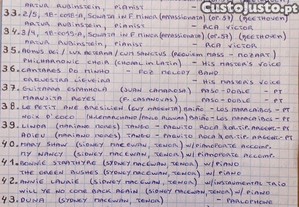 ARTUR RUBINSTEIN, PIANIST
custojusto.pt
33. 2/5, 18-0093A, SONATA IN F MINOR (APPASSIONATA) (OP.57) (BEETHOVEN)
ARTUR RUBINSTEIN, PIANIST - RCA VICTOR
34. 3/4, 18-0095A, SONATA IN F MINOR (APPASSIONATA) (OP.57) (BEETHOVEN)
ARTUR RUBINSTEIN, PIANIST - RCA VICTOR
35. AGNUS DEI / LUX AETERNA / CUM SANCTUS (REQUIEM MASS - MOZART)
PHILHARMONIC CHOIR (CHORAL IN LATIN) - HIS MASTER'S VOICE
36. CANTARES DO MINHO - FOR MELODY BAND
ORQUESTRA LIGEIRA - HIS MASTER'S VOICE
37. GUITARRA ESPANHOLA (JUAN CAMAROSA) PASO-DOBLE - PT
MANUVITA REYES (F. CASANOVAS) PASO-DOBLE - PT
38. LE PETIT ANE BRESILIEN (GUY MAGENTA) BAIÃO - LOS PARAGUAIOS - PT
NOIX D'COCO BAIÃO - LOS PARAGUAIOS - PT
39. LINDA (MARIANO MORES) TANGO - PAQUITO ROCA - PT
ADIEU (MARIANO MORES) TANGO - PAQUITO ROCA - PT
40. MARY SHAW (SIDNEY MACEWAN, TENOR) W/ PIANOFORTE ACCOMP.
MY NANCY (SIDNEY MACEWAN, TENOR) W/ PIANOFORTE ACCOMP.
41. BONNIE STRATHYRE (SYDNEY MACEWAN, TENOR) W/ PIANO
THE GREEN BUSHES (SYDNEY MACEWAN, TENOR) W/ PIANO
42. ANNIE LAURIE (SIDNEY MACEWAN, TENOR) W/ INSTRUMENTAL TRIO
WILL YE NO COME BACK AGAIN (SIDNEY MACEWAN, TENOR) W/ PIANO
43. DUNA (SYDNEY MACEWAN, TENOR) " - PARLOPHONE